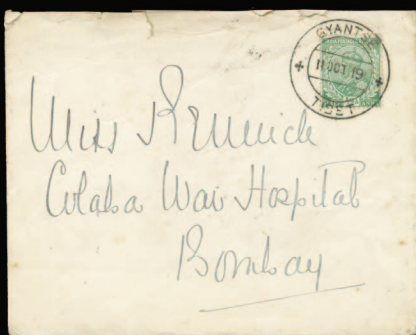 GYANTSE
11 OCT 19
TIBET
Miss Rennick
Colaba War Hospital
Bombay